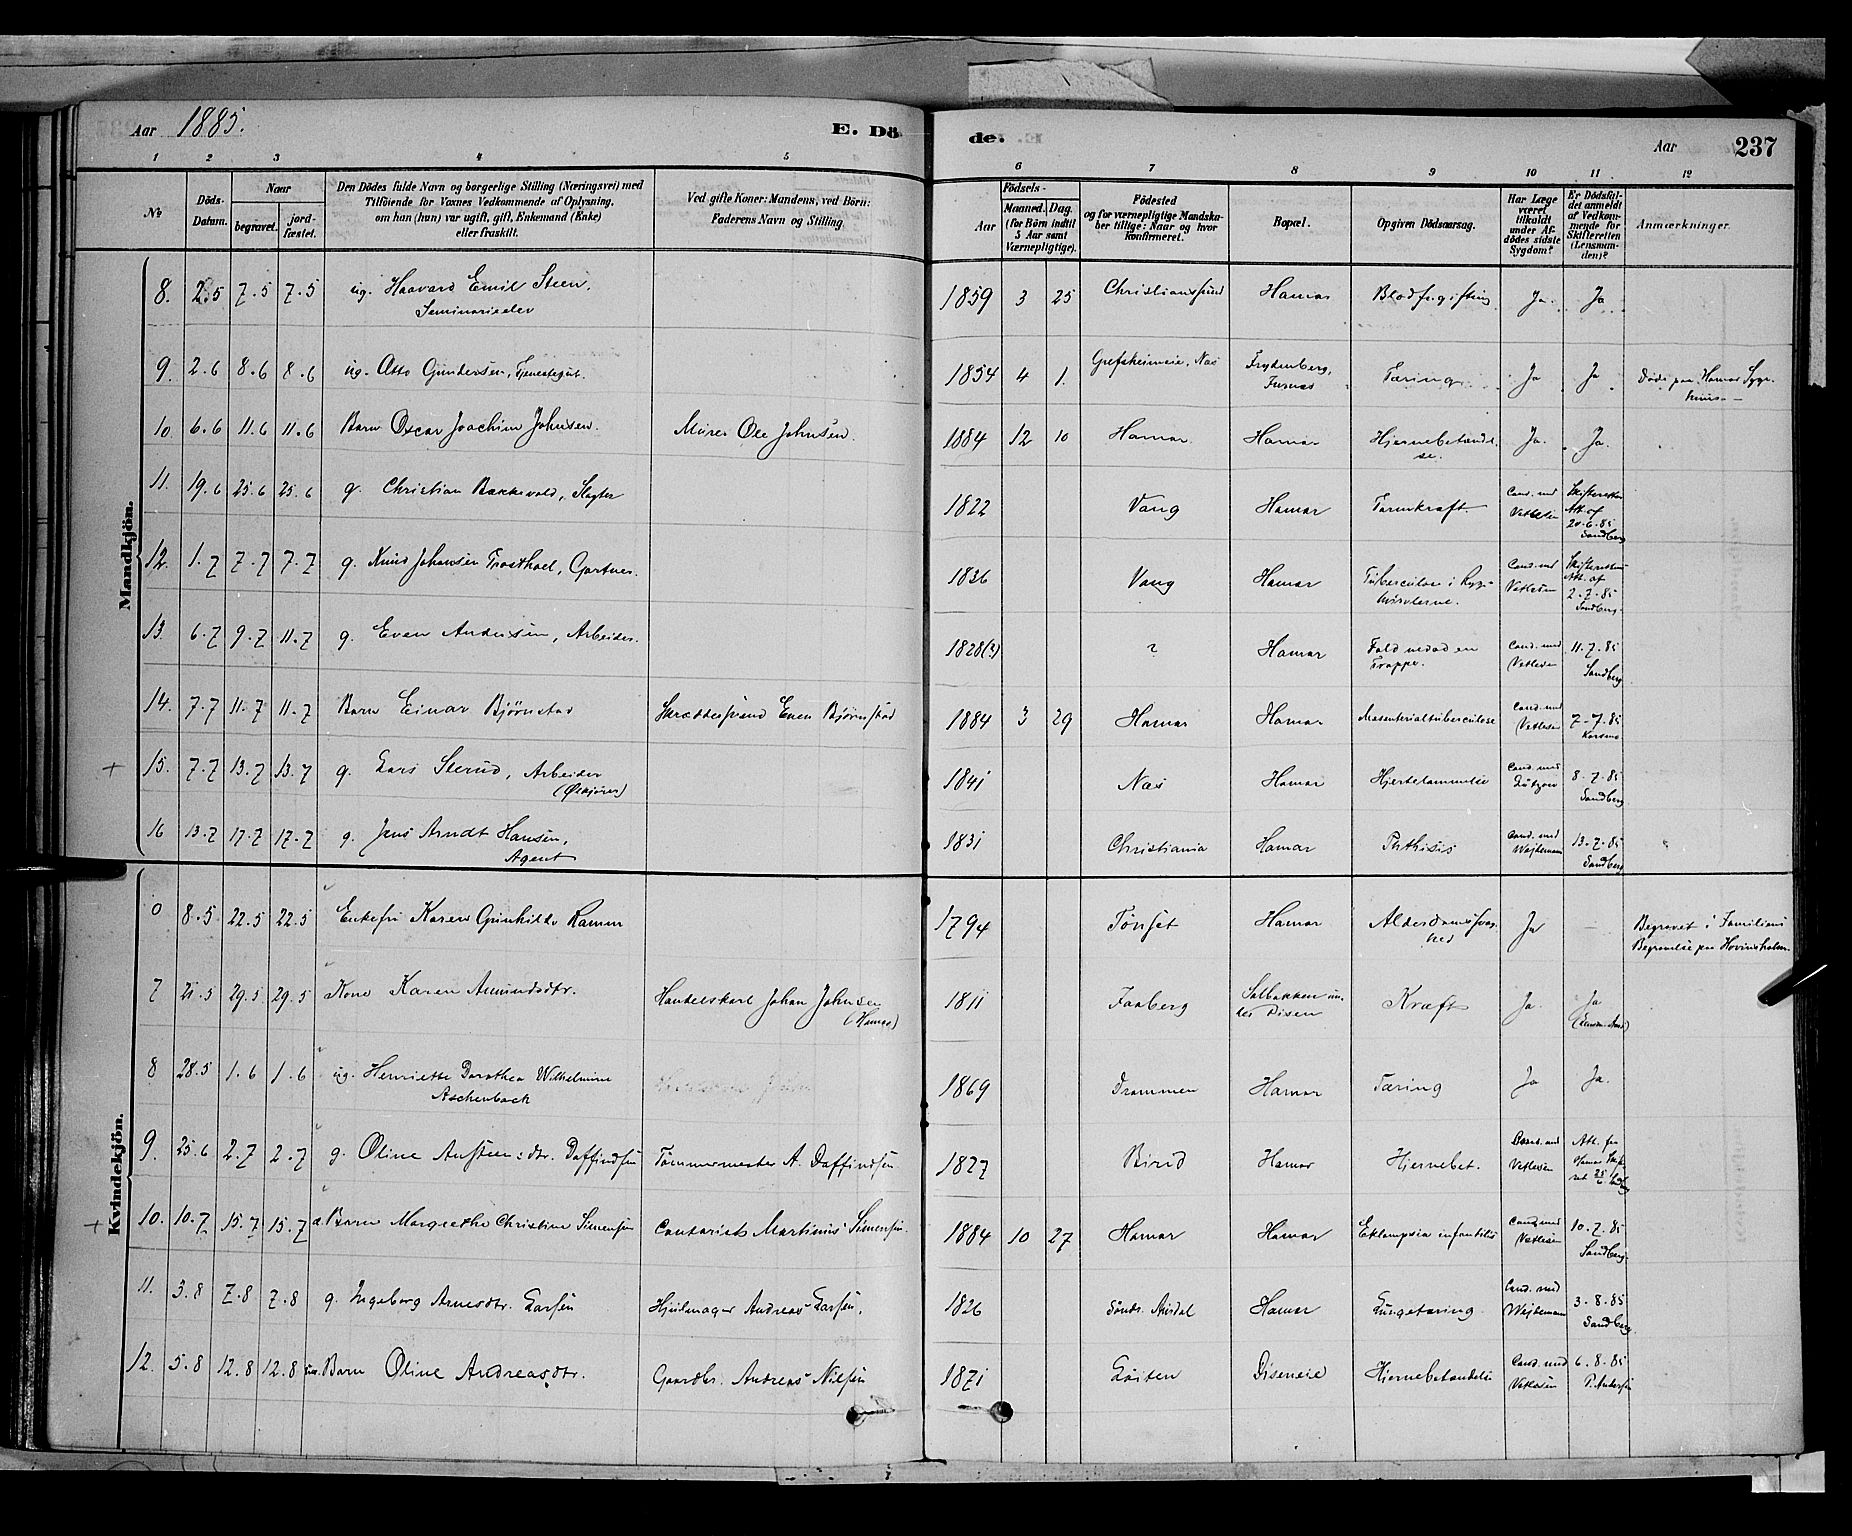 Aar 1885. E. Dö de. Aar 237
1 2 3 4 5 6 7 8 9 10 11 12
№ Döds-Datum. Naar begravet. jord-fæstet.
Den Dödes fulde Navn og borgerlige Stilling (Næringsvei) med
Tilföiende for Voxnes Vedkommende af Oplysning,
om han (hun) var ugift, gift, Enkemand (Enke)
eller fraskilt.
Ved gifte Koner: Mandens, ved Börn:
Faderens Navn og Stilling.
Födsels- Aar Maaned. Dag.
(for Börn indtil
5 Aar samt
Værnepligtige).
Födested
og for værnepligtige Mandska-
ber tillige: Naar og hvor
konfirmeret.
Bopæl.
Opgiven Dödsaarsag.
Har Læge
været
tilkaldt
under Af-
dödes sidste
Sygdom?
Er Dödsfal-
det anmeldt
af Vedkom-
mende for
Skifteretten
(Lensman-
den)?
Anmærkninger.
Mandkjön.
8. 2.5 7.5 7.5 ug. Haavard Emil Steen, 1859 3 25 Christianssund Hamar Blodforgiftning Ja. Ja
Seminarieelev
9. 2.6 8.6 8.6 ug. Otto Gundersen, Tjenestegut. 1854 4 1. Grefsheimeie, Næs Frydenberg, Furnæs Tæring Ja Ja Døde paa Hamar Syge-
huus
10 6.6 11.6 11.6 Barn Oscar Joachim Johnsen. Murer Ole Johnsen. 1884 12 10 Hamar Hamar Hjernebetændel-
se. Ja. Ja.
11. 19.6 25.6 25.6 g. Christian Bakkevold, Slagter 1822 Vang Hamar Tarmkræft. Cand. med Vetlesen Skifteretten Att. af 20-6-85 Sandberg
12. 1.7 7.7 7.7 g. Knud Johansen Trosthoel, Gartner. 1836 Vang Hamar Tuberculose i Ryg-
hvirvlerne. Cand. med Vetlesen Skifteretten Att. af 2-7-85 Sandberg.
13. 6.7 9.7 11.7 g. Even Andersen, Arbeider. 1828(?) ? Hamar Fald nedad en
Trappe. Cand. med Vetlesen 11.7.85 Sandberg
14. 7.7 11.7 11.7 Barn Einar Bjørnstad Skræddersvend Even Bjørnstad 1884 3 29 Hamar Hamar Mesenterialtuberculose Cand. med Vetlesen 7-7-85 Korsmo
15. 7.7 13.7 13.7 g. Lars Sterud, Arbeider 1841 Næs Hamar Hjertelammelse Cand. med Lützow 8-7-85 Sandberg.
(Ølkjører)
16 13.7 17.7 17.7 g. Jens Arndt Hansen, 1831 Christiania Hamar Phthisis Cand. med Wejdemann 13-7-85 Sandberg
Agent
Kvindekjön.
8.5 22.5 22.5 Enkefru Karen Gunhilde Ramm 1794 Tønset Hamar Alderdomssvag-
hed Ja – Begravet i Familiens
Begravelse paa Hovinsholm.
7 21.5 29.5 29.5 Kone Karen Amundsdtr. Handelskarl Johan Johnsen 1811 Faaberg Solbakken un-
der Disen Kræft Ja. Ja
(Hamar)
8 28.5 1.6 1.6 ug. Henriette Dorothea Wilhelmine 1869 Drammen Hamar Tæring Ja Ja.
Aschenbach
9. 25.6 2.7 2.7 g. Oline Austensdtr. Daffindsen Tømmermester A. Daffindsen 1827 Birid Hamar Hjernebet. Cand. med Vetlesen Att. fra Hamar
10. 10.7 15.7 15.7 Barn Margrethe Christine Simensen Contorist Martinus Simensen. 1884 10 27 Hamar Hamar Eklampsia infantilis Cand med Vetlesen 10-7-85 Sandberg.
11. 3.8 7.8 7.8 g. Ingeborg Arnesdtr. Larsen Hjulmager Andreas Larsen. 1826 Søndr. Aurdal Hamar Lungetæring. Cand. med Wejdemann 3-8-85 Sandberg.
12. 5.8 12.8 12.8 Barn Oline Andreasdtr. Gaardbr. Andreas Nilsen 1871 Løiten Diseneie Hjernebetændelse Cand. med Vetlesen 6-8-85 P. Andersen